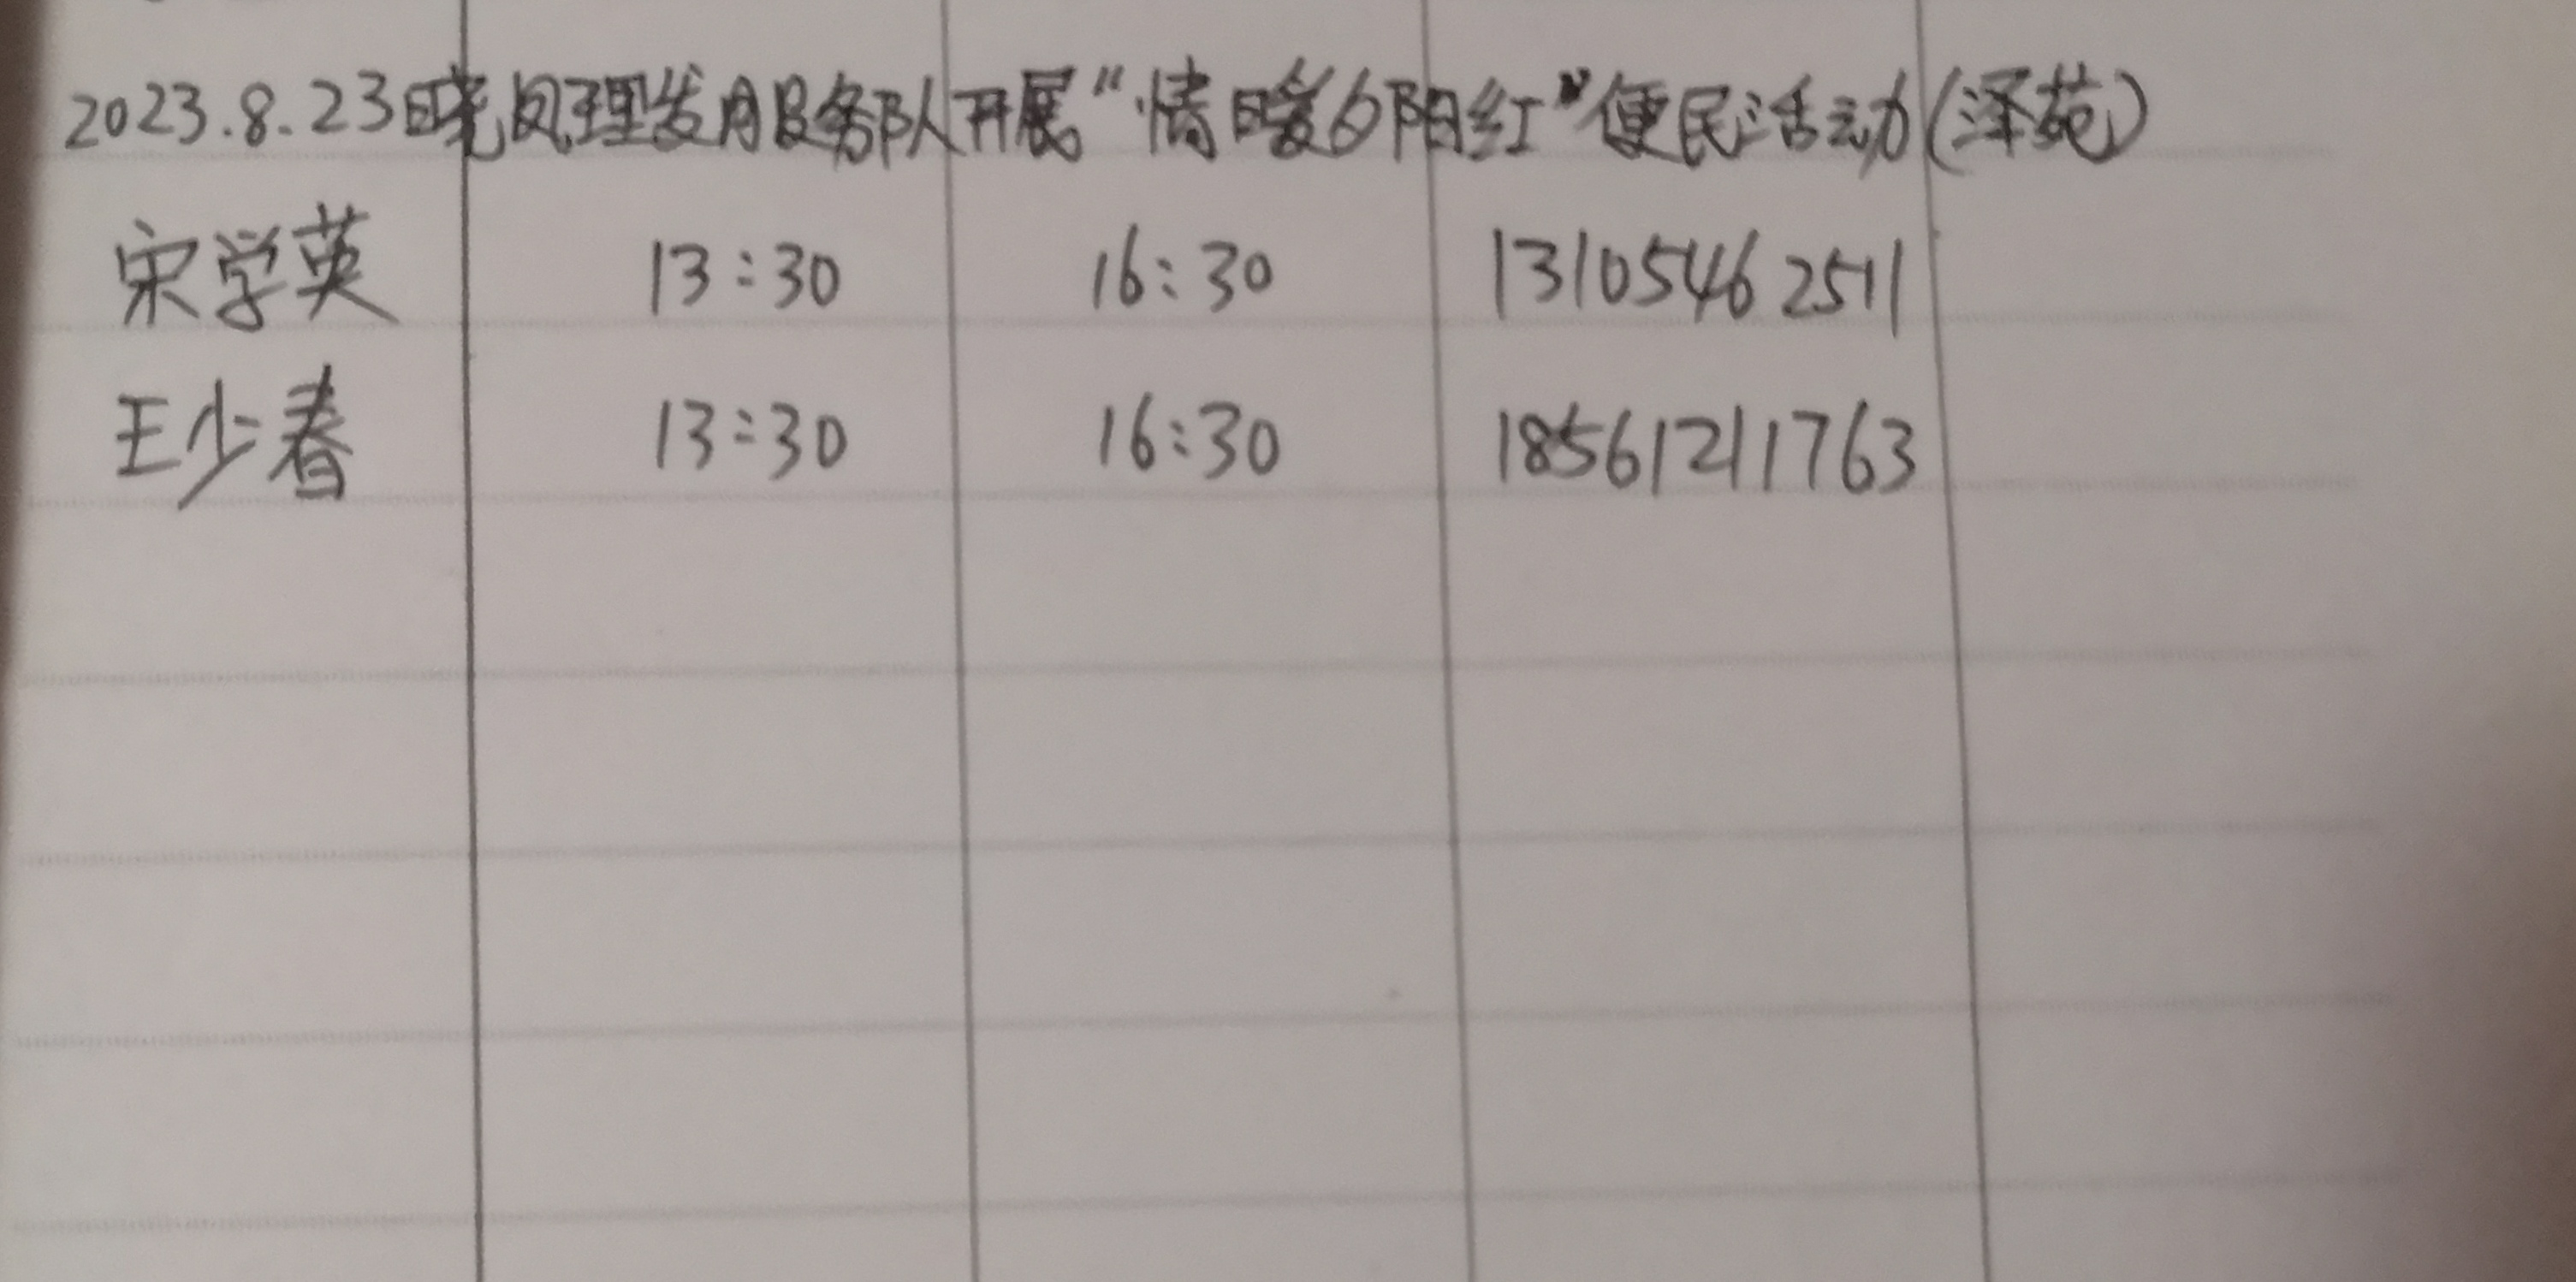 2023.8.23晓凤理发服务队开展“情暖夕阳红”便民活动(泽苑)
宋学英 13:30 16:30 13105462511
王少春 13:30 16:30 18561211763